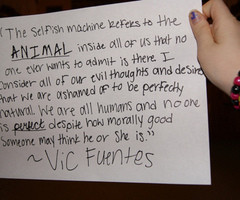 "The Selfish machine refers to the
ANIMAL inside all of us that no
one ever wants to admit is there I
Consider all of our evil thoughts and desires
that we are ashamed of to be perfectly
natural. We are all humans and no one
is perfect despite how morally good
Someone may think he or She is."
~Vic Fuentes